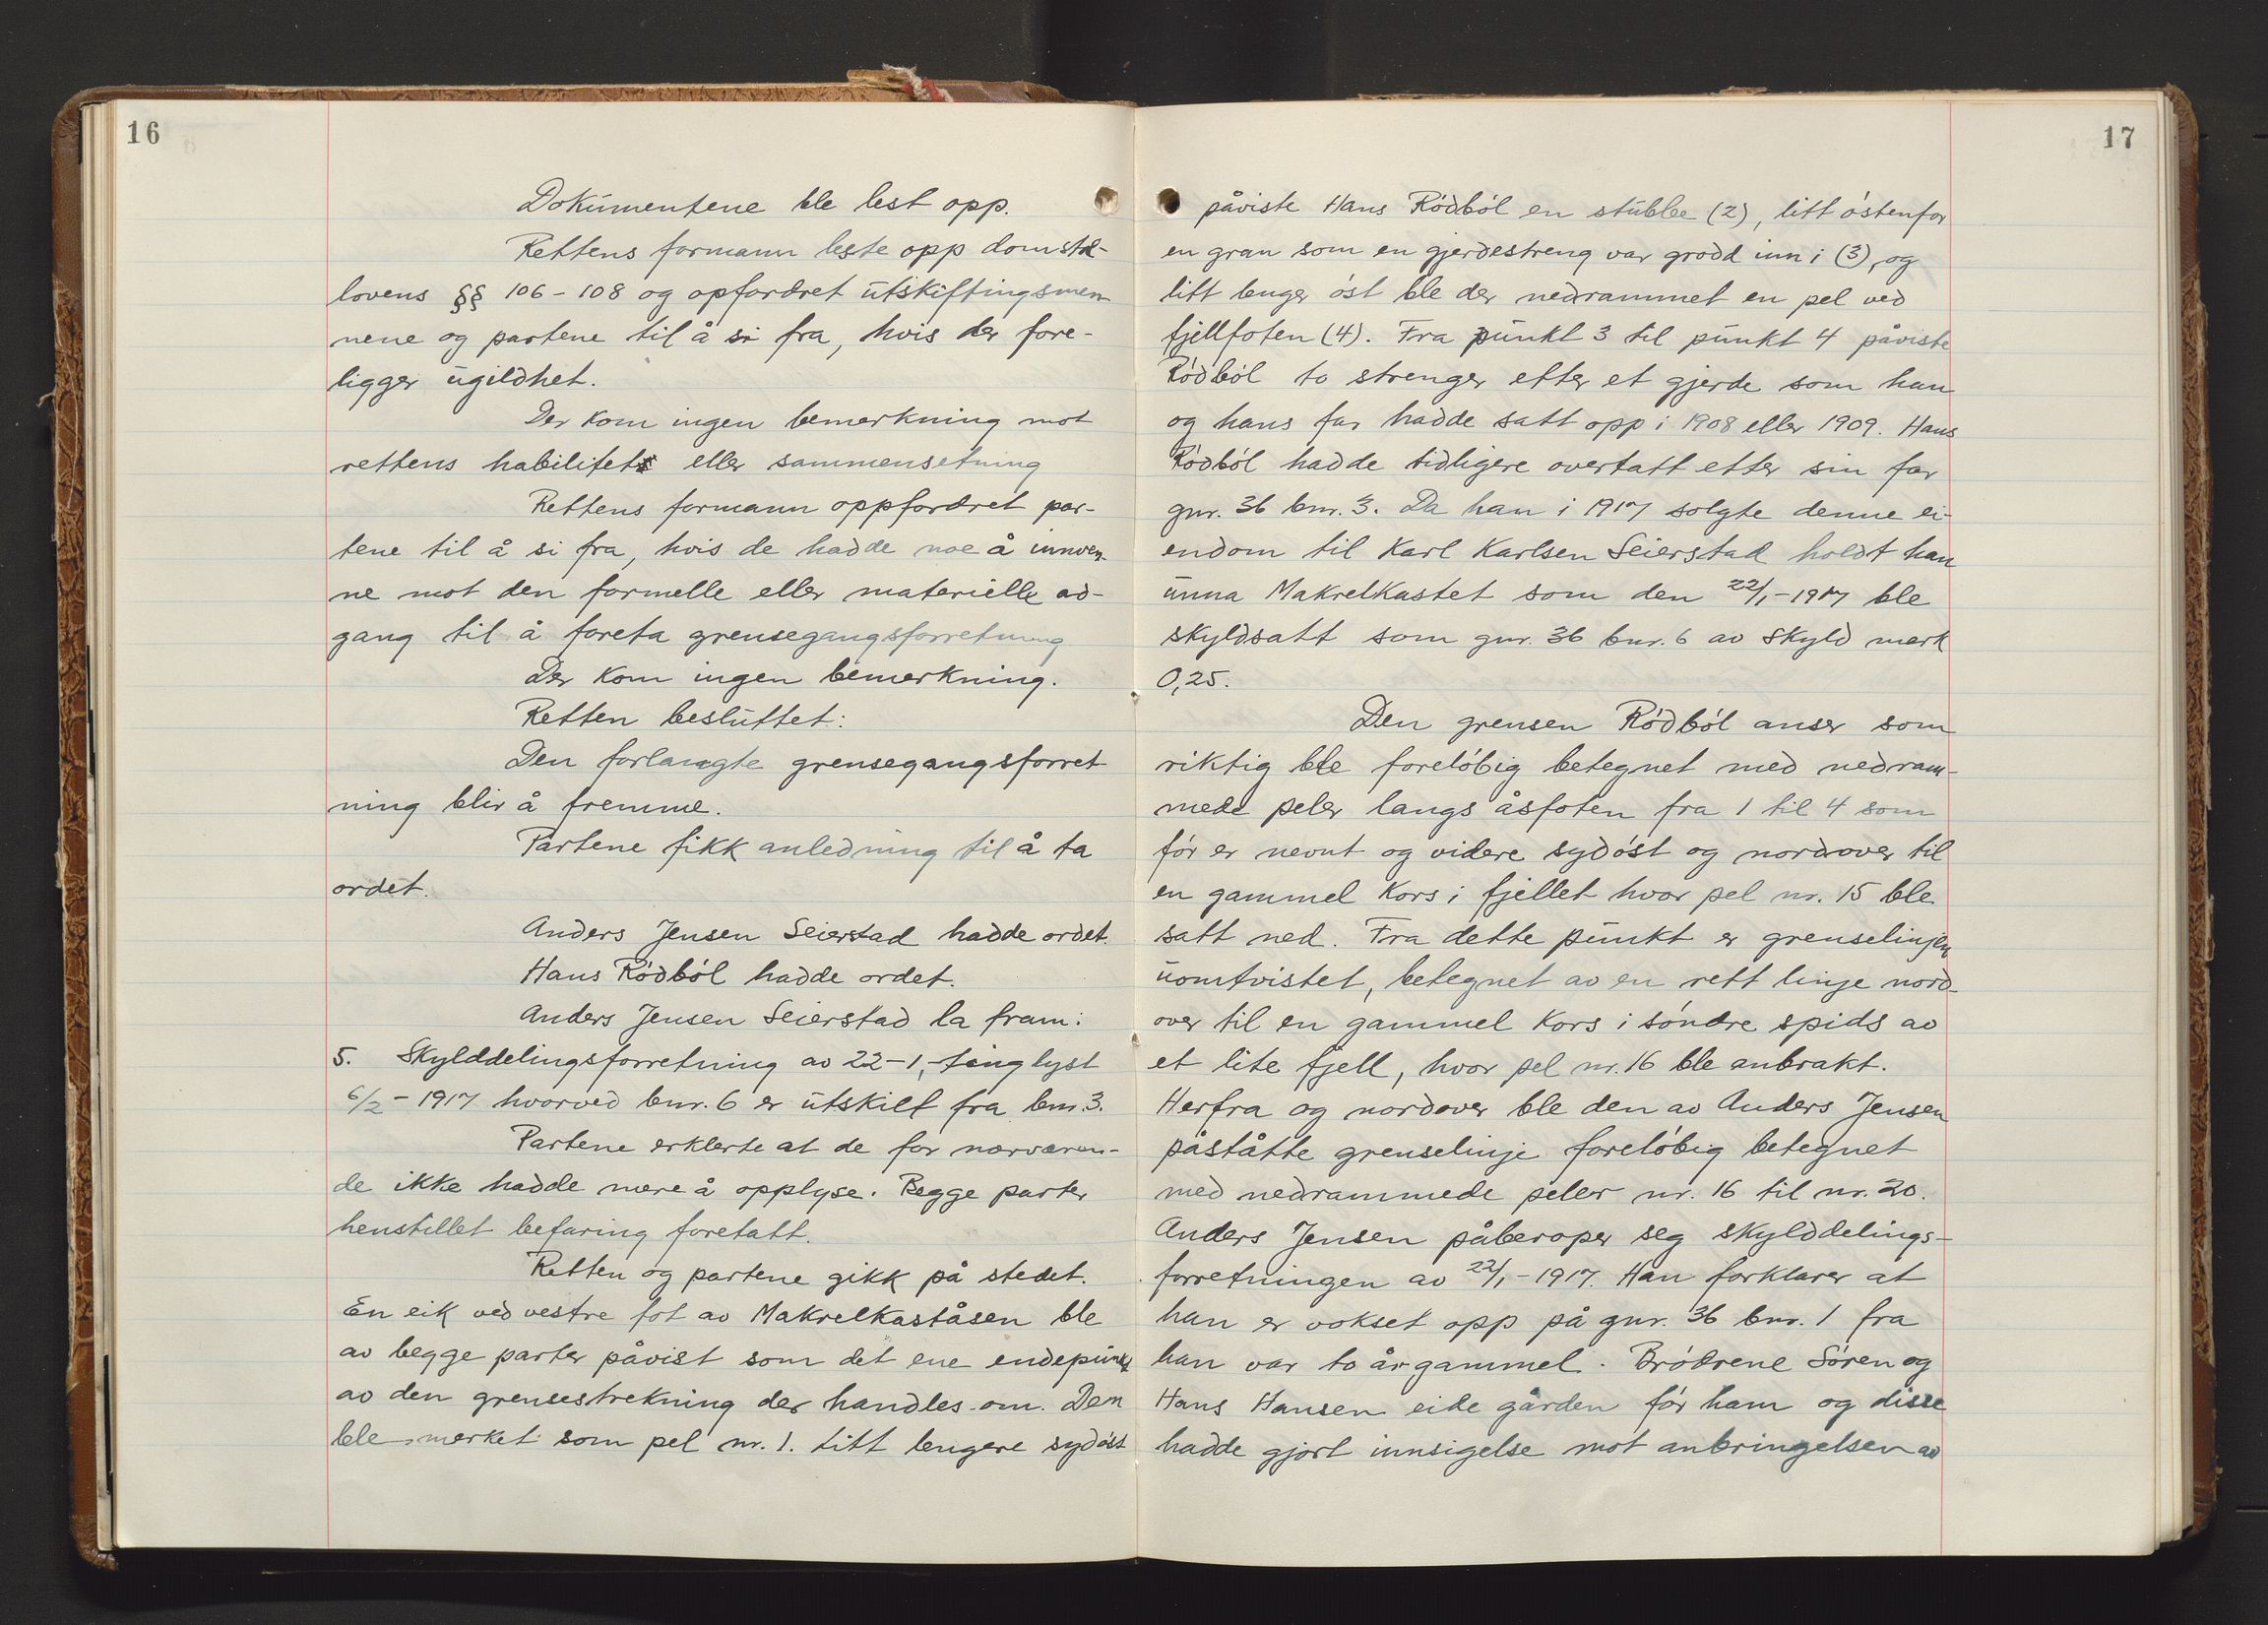 16
Dokumentene ble lest opp.
Rettens formann leste opp domstol-
lovens §§ 106-108 og opfordret utskiftingsmen-
nene og partene til å si fra, hvis der fore-
ligger ugildhet.
Der kom ingen bemerkning mot
rettens habilitet eller sammensetning
Rettens formann oppfordret par-
tene til å si fra, hvis de hadde noe å innven-
ne mot den formelle eller materielle ad-
gang til å foreta grensegangsforretning
Der kom ingen bemerkning.
Retten besluttet:
Den forlangte grensegangsforret
ning blir å fremme.
Partene fikk anledning til å ta
ordet.
Anders Jensen Seierstad hadde ordet.
Hans Rödböl hadde ordet.
Anders Jensen Seierstad la fram:
5. Skylddelingsforretning av 22-1, tinglyst
6/2-1917 hvorved bnr. 6 er utskilt fra bnr. 3.
Partene erklerte at de for nærværen-
de ikke hadde mere å opplyse. Begge parter
henstillet befaring foretatt.
Retten og partene gikk på stedet.
En eik ved vestre fot av Makrelkaståsen ble
av begge parter påvist som det ene endepunkt
av den grensestrekning der handles om. Den
ble merket som pel nr. 1. Litt lengere sydöst
17
påviste Hans Rödböl en stubbe (2), litt östenfor
en gran som en gjerdestreng var grodd inn i (3), og
litt lenger öst ble der nedrammet en pel ved
fjellfoten (4). Fra punkt 3 til punkt 4 påviste
Rödböl to strenger efter et gjerde som han
og hans far hadde satt opp i 1908 eller 1909. Hans
Rödböl hadde tidligere overtatt etter sin far
gnr. 36 bnr. 3. Da han i 1917 solgte denne ei-
endom til Karl Karlsen Seierstad holdt han
unna Makrelkastet som den 22/1-1917 ble
skyldsatt som gnr. 36 bnr. 6 av skyld mark
0,25.
Den grensen Rödböl anser som
riktig ble forelöbig betegnet med nedram-
mede peler langs åsfoten fra 1 til 4 som
för er nevnt og videre sydöst og nordover til
en gammel kors i fjellet hvor pel nr. 15 ble
satt ned. Fra dette punkt er grenselinjen
uomtvistet, betegnet av en rett linje nord-
over til en gammel kors i söndre spids av
et lite fjell, hvor pel nr. 16 ble anbrakt.
Herfra og nordover ble den av Anders Jensen
påståtte grenselinje forelöbig betegnet
med nedrammede peler nr. 16 til nr. 20.
Anders Jensen påberoper seg skylddelings-
forretningen av 22/1-1917. Han forklarer at
han er vokset opp på gnr. 36 bnr. 1 fra
han var to år gammel. Brödrene Sören og
Hans Hansen eide gården för ham og disse
hadde gjort innsigelse mot anbringelsen av